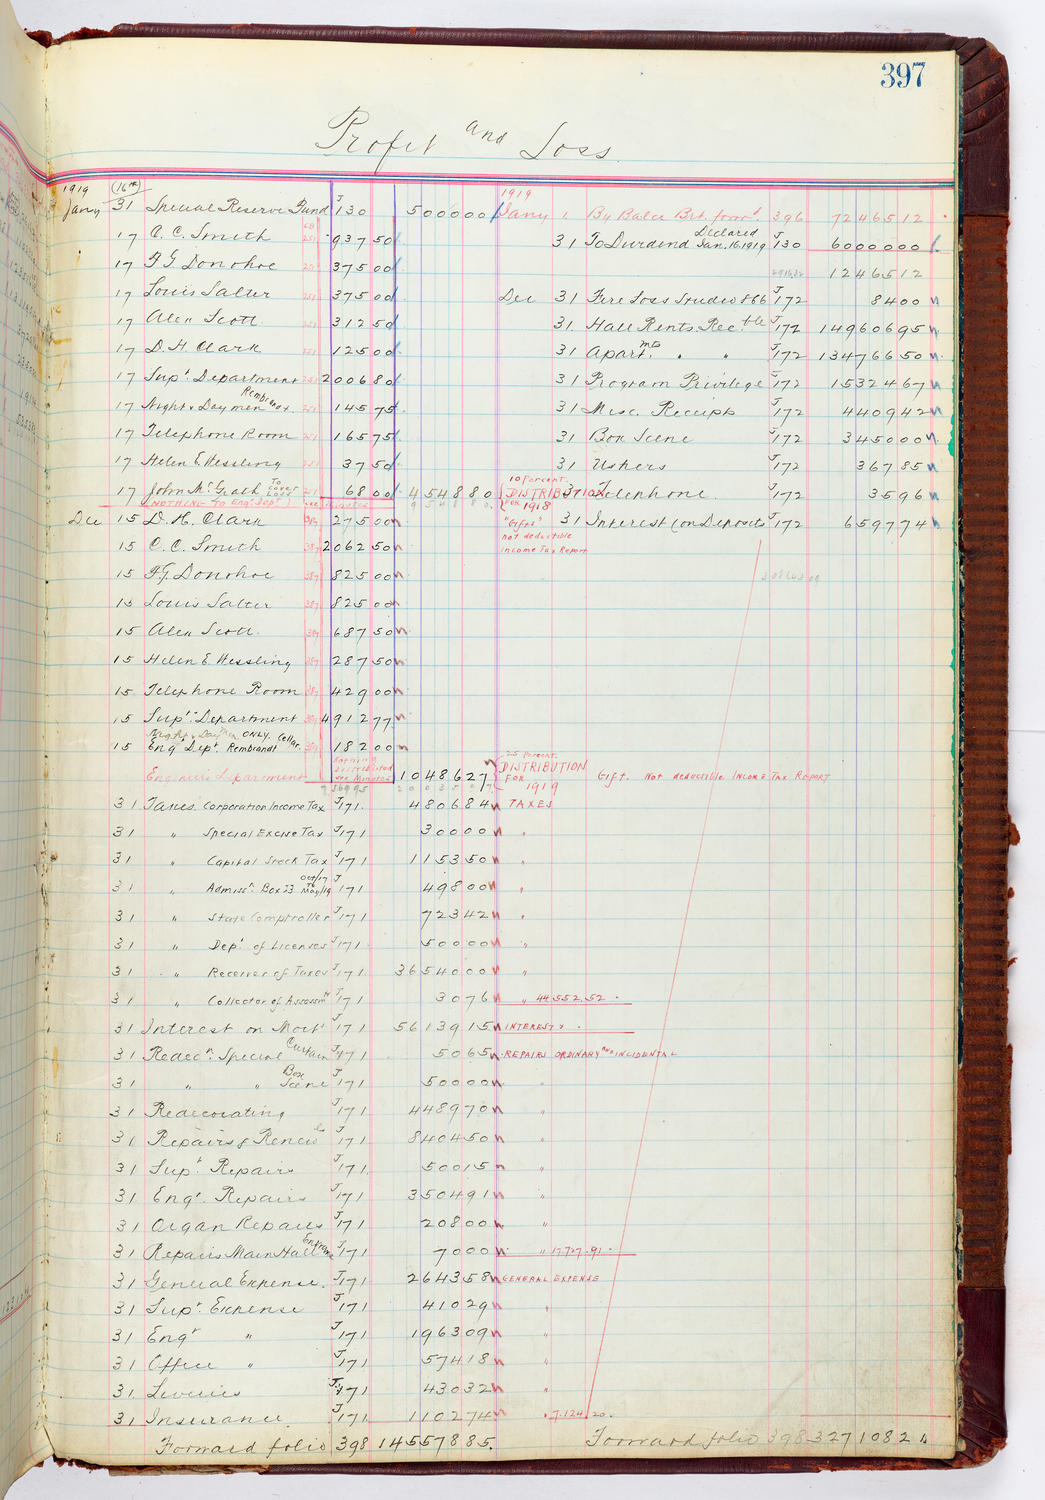 397
Profit and Loss
1919 (16th)
Jany 31 Special Reserve Fund J130 500000
17 C. C. Smith 93750
17 F. G. Donohoe 37500
17 Louis Salter 37500
17 Alex Scott 31250
17 D. H. Clark 12500
17 Supt Department 200680
17 Night & Daymen Rembrandt 14575
17 Telephone Room 16575
17 Helen E. Hessling 3750
17 John McGrath To Cover Loss 6800 454880
(NOTHING TO Engr Dept)
Dec 15 D. H. Clark 387 27500
15 C. C. Smith 387 206250
15 F. G. Donohoe 387 82500
15 Louis Salter 387 82500
15 Alex Scott. 387 68750
15 Helen E. Hessling 387 28750
15 Telephone Room 387 42900
15 Supt Department 387 491277
Night & Daymen ONLY. Cellar.
15 Engr Dept Rembrandt 18200
Engineers Department see Minutes 1048627
31 Taxes Corporation Income Tax J171. 480684 TAXES
31 " Special Excise Tax J171 30000 "
31 " Capital Stock Tax J171 115350 "
31 " Admissn Box 23 Oct/17 To May/19 J171 49800 "
31 " State Comptroller J171 72342 "
31 " Dept of Licenses J171 50000 "
31 " Receiver of Taxes J171 3654000 "
31 " Collector of Assessmts J171 3076 " 44552.52
31 Interest on Mort J171 5613915 INTEREST
31 Redecn Special Curtain J171 5065 REPAIRS ORDINARY AND INCIDENTAL
31 " " Box Scene J171 50000 "
31 Redecorating J171 448970 "
31 Repairs & Renewls J171 840450 "
31 Supt Repairs J171 50015 "
31 Engr. Repairs J171 350491 "
31 Organ Repairs J171 20800 "
31 Repairs Main Hall Entrance J171 7000 " 17.727.91
31 General Expense. J171 264358 GENERAL EXPENSE
31 Supt. Expense J171 41029 "
31 Engr " J171 196309 "
31 Office " J171 57418 "
31 Liveries J171 43032 "
31 Insurance J171 110274 " 7.124.20
Forward folio 398 14557885
1919
Jany 1 By Balce Brt. forwd. 396 7246512
31 To Dividend Declared Jan. 16, 1919 J130 6000000
1246512
Dec 31 Fire Loss Studio 866 J172 8400
31 Hall Rents Rec.ble J172 14960695
31 Apartmts " " J172 13476650
31 Program Privilege J172 1532467
31 Misc. Receipts J172 440942
31 Box Scene J172 345000
31 Ushers J172 36785
31 Telephone J172 3596
31 Interest (on Deposits J172 659774
10 Percent. DISTRIBUTION FOR 1918
"Gifts" not deductible Income Tax Report
25 Percent. DISTRIBUTION FOR 1919
Gift. Not deductible INCOME TAX REPORT
Forward folio 398 32710821